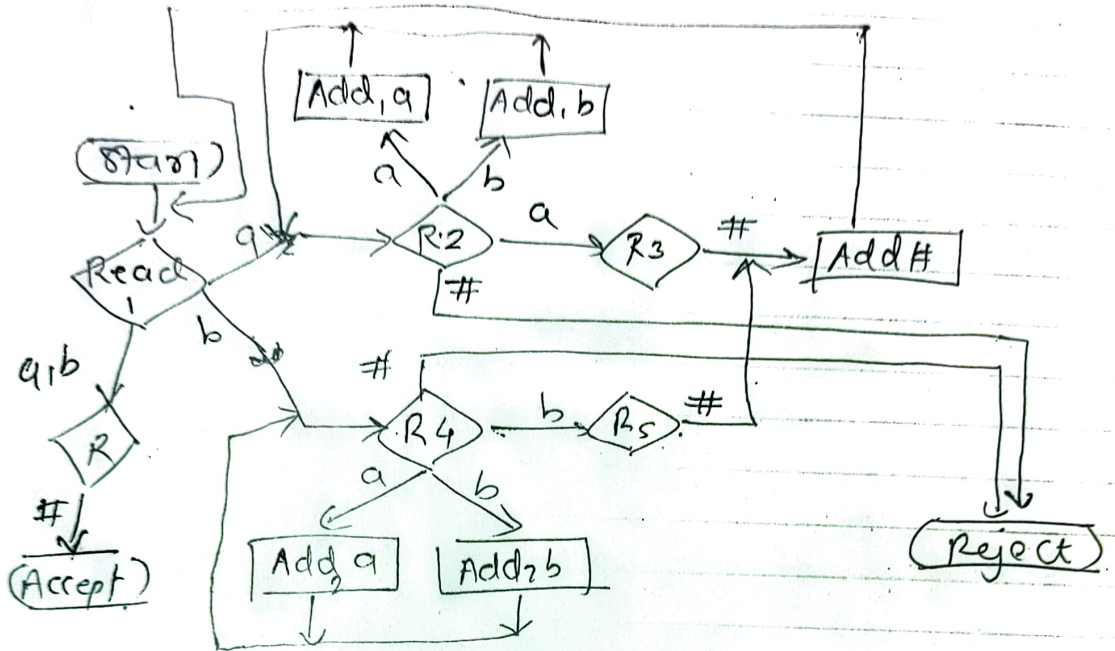 Add₁ a
Add₁ b
Start
a
b
a
#
a
R2
R3
Add #
Read
1
#
b
a,b
#
R
R4
b
R5
#
#
a
b
Accept
Add₂ a
Add₂ b
Reject